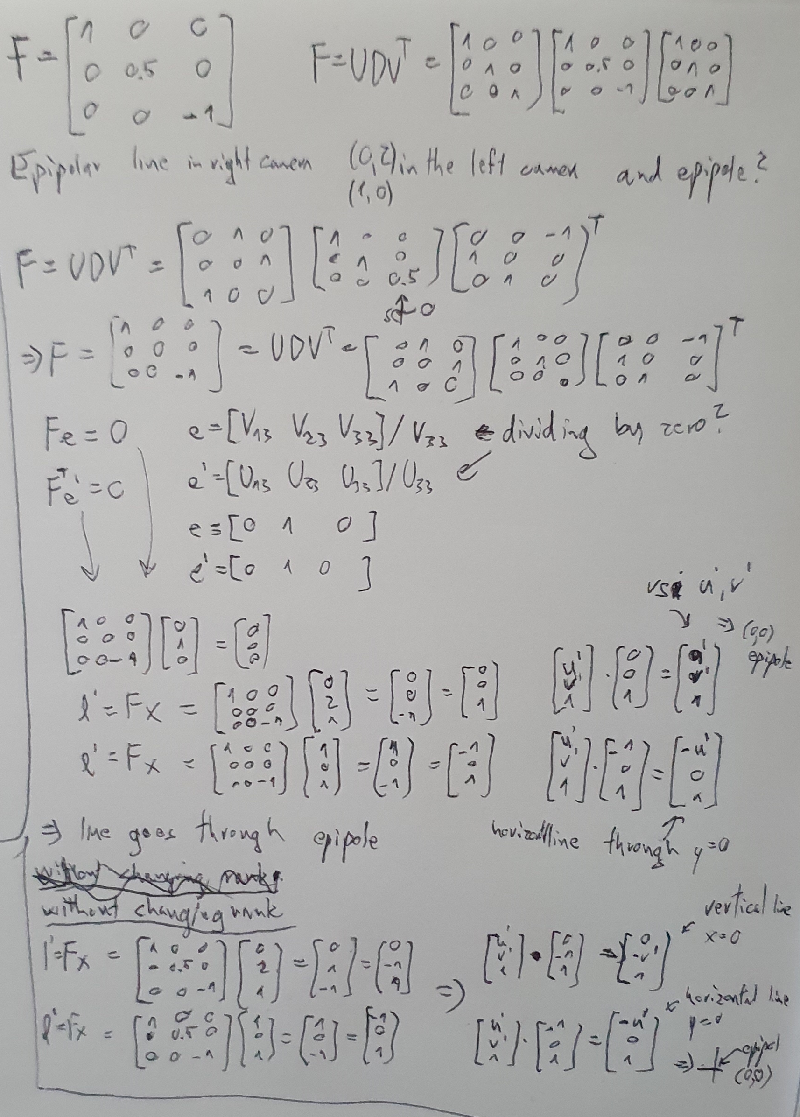 F = [1 0 0; 0 0.5 0; 0 0 -1] F = UDV^T = [1 0 0; 0 1 0; 0 0 1] [1 0 0; 0 0.5 0; 0 0 -1] [1 0 0; 0 1 0; 0 0 1]
Epipolar line in right camera (0,2) in the left camera and epipole?
(1,0)
F = UDV^T = [0 1 0; 0 0 1; 1 0 0] [1 0 0; 0 1 0; 0 0 0.5] [0 0 -1; 1 0 0; 0 1 0]^T
set 0
⇒ F = [1 0 0; 0 0 0; 0 0 -1] = UDV^T = [0 1 0; 0 0 1; 1 0 0] [1 0 0; 0 1 0; 0 0 0] [0 0 -1; 1 0 0; 0 1 0]^T
Fe = 0 e = [V13 V23 V33] / V33 ← dividing by zero?
F^T e' = 0 e' = [U13 U23 U33] / U33 ↙
e = [0 1 0]
e' = [0 1 0]
vs u', v'
[1 0 0; 0 0 0; 0 0 -1] [0; 1; 0] = [0; 0; 0]
⇒ (0,0) epipole
l' = Fx = [1 0 0; 0 0 0; 0 0 -1] [0; 2; 1] = [0; 0; -1] = [0; 0; 1] [u'; v'; 1] · [0; 0; 1] = [u'; v'; 1]
l' = Fx = [1 0 0; 0 0 0; 0 0 -1] [1; 0; 1] = [1; 0; -1] = [-1; 0; 1] [u'; v'; 1] · [-1; 0; 1] = [-u'; 0; 1]
⇒ line goes through epipole horizontal line through y=0
without changing rank
without changing rank
l' = Fx = [1 0 0; 0 0.5 0; 0 0 -1] [0; 2; 1] = [0; 1; -1] = [0; -1; 1] ⇒ [u'; v'; 1] · [0; -1; 1] = [0; -v'; 1] vertical line x=0
l' = Fx = [1 0 0; 0 0.5 0; 0 0 -1] [1; 0; 1] = [1; 0; -1] = [-1; 0; 1] [u'; v'; 1] · [-1; 0; 1] = [-u'; 0; 1] horizontal line y=0
⇒ + ← epipol (0,0)